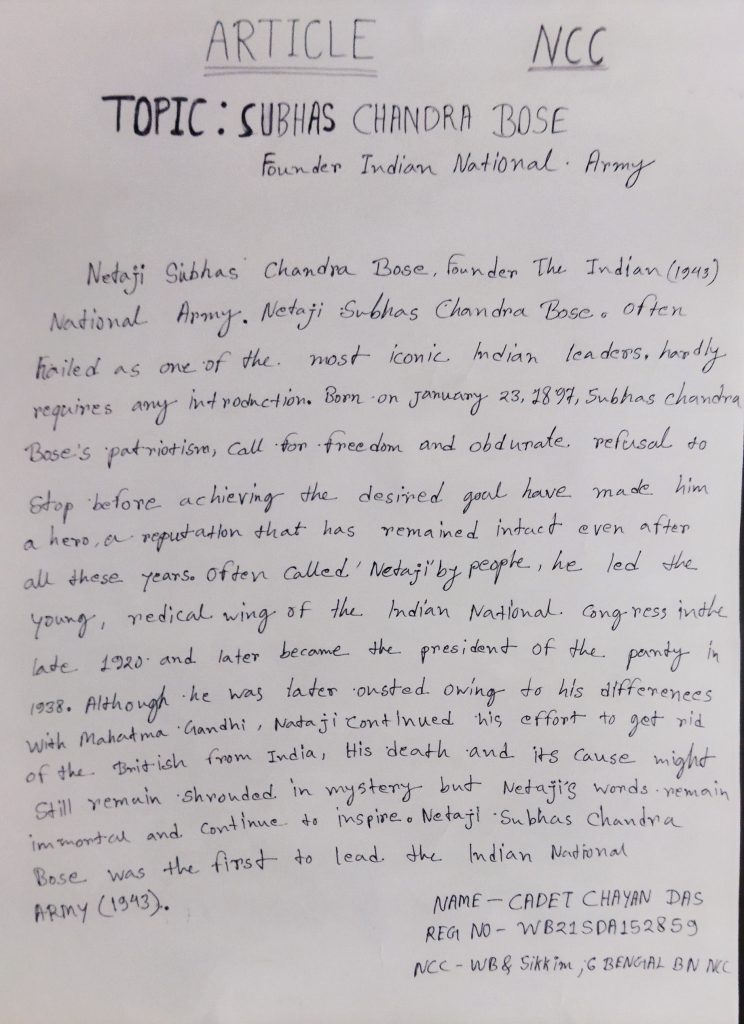 ARTICLE NCC
TOPIC: SUBHAS CHANDRA BOSE
Founder Indian National. Army
Netaji Subhas Chandra Bose, Founder The Indian (1943)
National Army. Netaji Subhas Chandra Bose. often
hailed as one of the. most iconic Indian leaders, hardly
requires any introduction. Born on January 23, 1897, Subhas chandra
Bose's patriotism, call for freedom and obdurate. refusal to
stop before achieving the desired goal have made him
a hero, a reputation that has remained intact even after
all these years. Often called 'Netaji' by people, he led the
young, redical wing of the Indian National. Congress in the
late 1920 and later became the president of the party in
1938. Although he was later ousted owing to his differences
with Mahatma Gandhi, Nataji continued his effort to get rid
of the British from India, His death and its cause might
still remain shrouded in mystery but Netaji's words remain
immortal and continue to inspire. Netaji Subhas Chandra
Bose was the first to lead the Indian National
ARMY (1943).
NAME - CADET CHAYAN DAS
REG NO - WB21SDA152859
NCC - WB & Sikkim, 6 BENGAL BN NCC